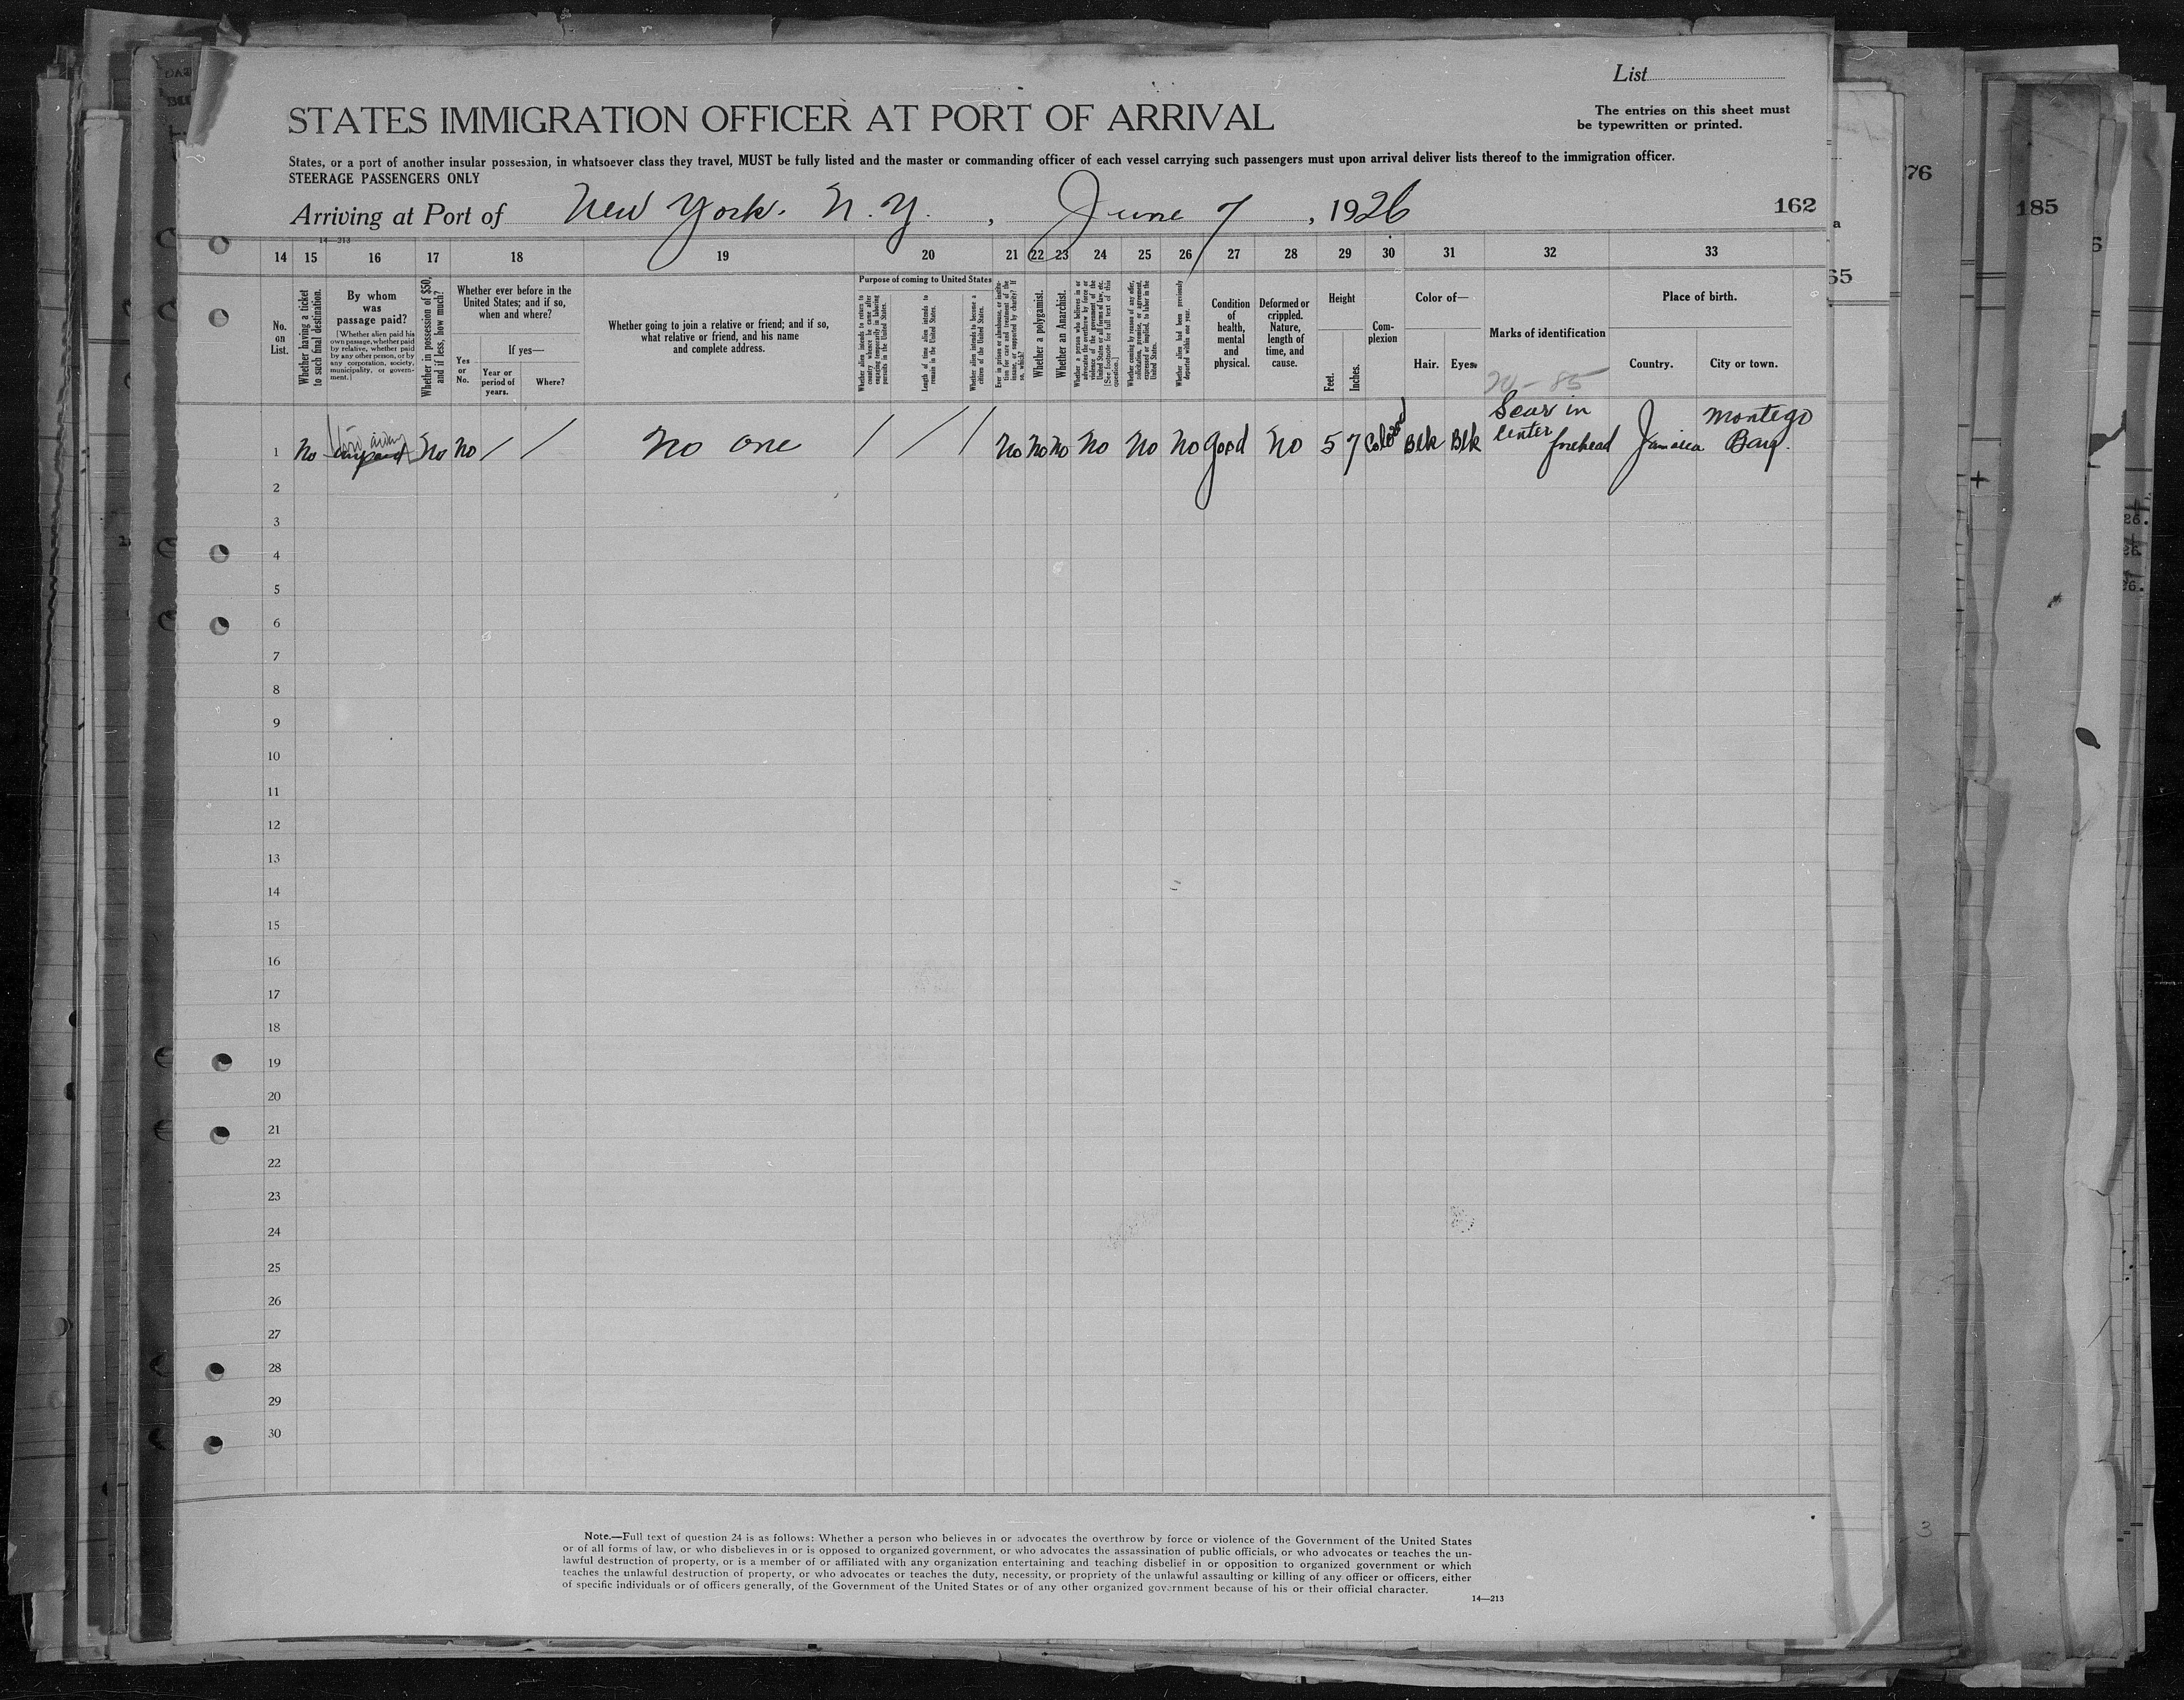 List
STATES IMMIGRATION OFFICER AT PORT OF ARRIVAL
The entries on this sheet must
be typewritten or printed.
States, or a port of another insular possession, in whatsoever class they travel, MUST be fully listed and the master or commanding officer of each vessel carrying such passengers must upon arrival deliver lists thereof to the immigration officer.
STEERAGE PASSENGERS ONLY
Arriving at Port of New York. N.Y. , June 7 , 1926
162
185
14—213
14 15 16 17 18 19 20 21 22 23 24 25 26 27 28 29 30 31 32 33
No. on List.
Whether having a ticket to such final destination.
By whom was passage paid?
[Whether alien paid his own passage, whether paid by relative, whether paid by any other person, or by any corporation, society, municipality, or government.]
Whether in possession of $50, and if less, how much?
Whether ever before in the United States; and if so, when and where?
Yes or No.
If yes—
Year or period of years.
Where?
Whether going to join a relative or friend; and if so, what relative or friend, and his name and complete address.
Purpose of coming to United States
Whether alien intends to return to country whence he came after engaging temporarily in laboring pursuits in the United States.
Length of time alien intends to remain in the United States.
Whether alien intends to become a citizen of the United States.
Ever in prison or almshouse, or institution for care and treatment of the insane, or supported by charity? If so, which?
Whether a polygamist.
Whether an Anarchist.
Whether a person who believes in or advocates the overthrow by force or violence of the government of the United States or all forms of law, etc. [See footnote for full text of this question.]
Whether coming by reason of any offer, solicitation, promise, or agreement, expressed or implied, to labor in the United States.
Whether alien had been previously deported within one year.
Condition of health, mental and physical.
Deformed or crippled. Nature, length of time, and cause.
Height
Feet. Inches.
Complexion
Color of—
Hair. Eyes.
Marks of identification
Place of birth.
Country. City or town.
20-85
1 No No No / / No one / / / No No No No No No Good No 5 7 Colored Blk Blk Scar in center forehead Jamaica Montego Bay.
2
3
4
5
6
7
8
9
10
11
12
13
14
15
16
17
18
19
20
21
22
23
24
25
26
27
28
29
30
Note.—Full text of question 24 is as follows: Whether a person who believes in or advocates the overthrow by force or violence of the Government of the United States
or of all forms of law, or who disbelieves in or is opposed to organized government, or who advocates the assassination of public officials, or who advocates or teaches the un-
lawful destruction of property, or is a member of or affiliated with any organization entertaining and teaching disbelief in or opposition to organized government or which
teaches the unlawful destruction of property, or who advocates or teaches the duty, necessity, or propriety of the unlawful assaulting or killing of any officer or officers, either
of specific individuals or of officers generally, of the Government of the United States or of any other organized government because of his or their official character.
14—213